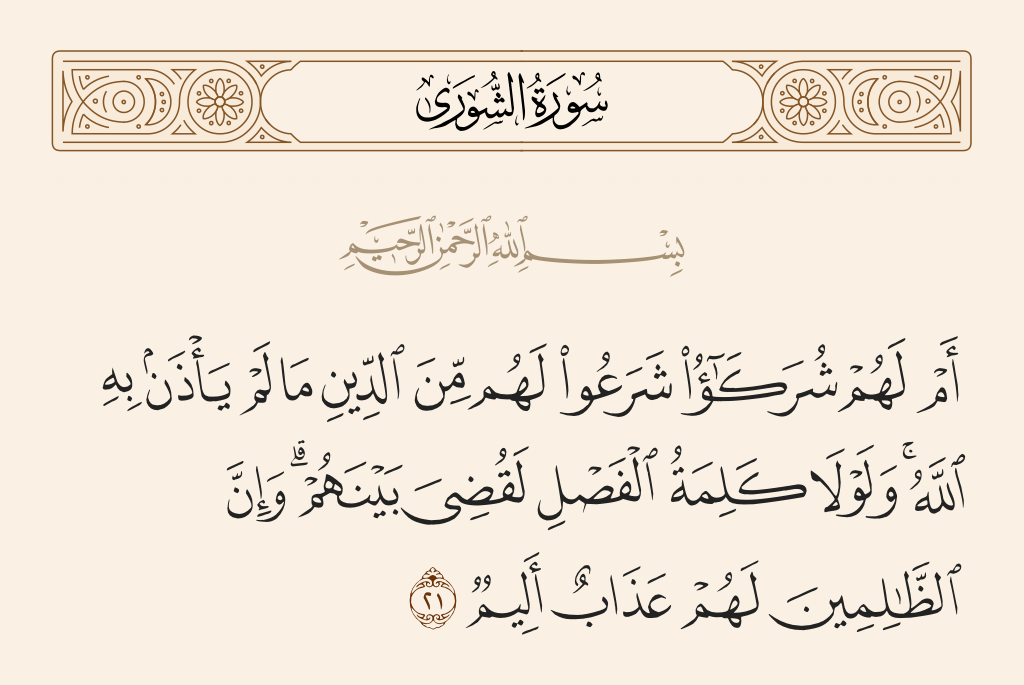 سُورَةُ الشُّورَىٰ
بِسْمِ ٱللَّهِ ٱلرَّحْمَٰنِ ٱلرَّحِيمِ
أَمْ لَهُمْ شُرَكَٰٓؤُا۟ شَرَعُوا۟ لَهُم مِّنَ ٱلدِّينِ مَا لَمْ يَأْذَنۢ بِهِ
ٱللَّهُ ۚ وَلَوْلَا كَلِمَةُ ٱلْفَصْلِ لَقُضِىَ بَيْنَهُمْ ۗ وَإِنَّ
ٱلظَّٰلِمِينَ لَهُمْ عَذَابٌ أَلِيمٌ ٢١